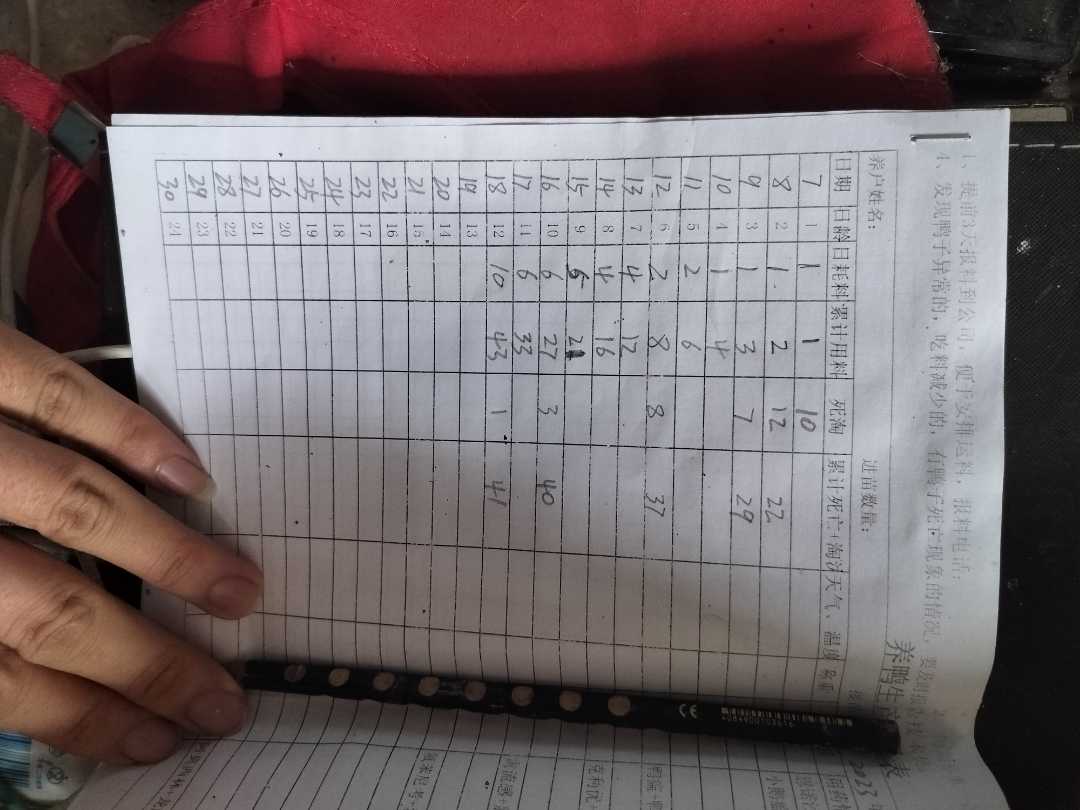 1、提前3天报料到公司，便于安排运料，报料电话：
4、发现鸭子异常的，吃料减少的，有鸭子死亡现象的情况，要及时
养鸭生
2023
养户姓名： 进苗数量：
日期 日龄 日耗料 累计用料 死淘 累计死亡+淘汰 天气、温度
7 1 1 1 10
8 2 1 2 12 22
9 3 1 3 7 29
10 4 1 4
11 5 2 6
12 6 2 8 8 37
13 7 4 12
14 8 4 16
15 9 5 21
16 10 6 27 3 40
17 11 6 33
18 12 10 43 1 41
19 13
20 14
21 15
22 16
23 17
24 18
25 19
26 20
27 21
28 22
29 23
30 24
CE